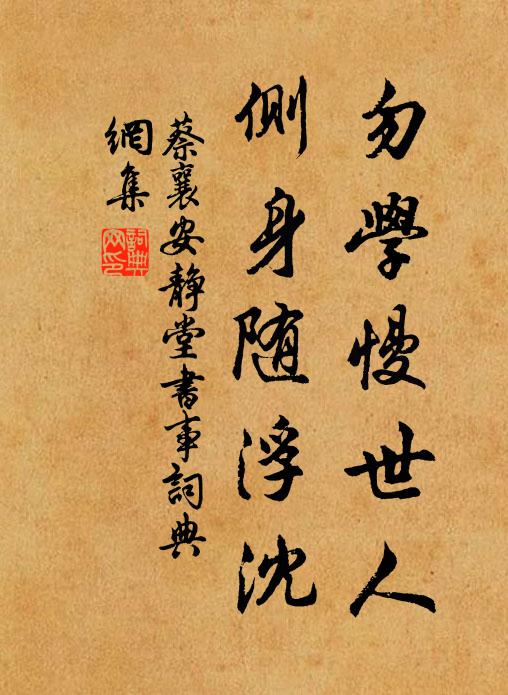 勿學慢世人
側身随浮沈
蔡襄安静堂書事詞典
網集
詞典
网印